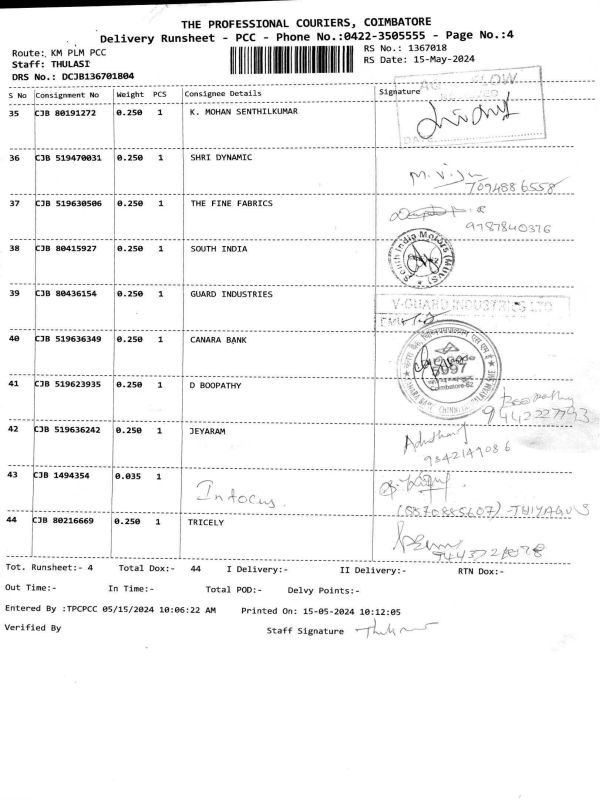 THE PROFESSIONAL COURIERS, COIMBATORE
Delivery Runsheet - PCC - Phone No.:0422-3505555 - Page No.:4
Route: KM PLM PCC
RS No.: 1367018
Staff: THULASI
RS Date: 15-May-2024
DRS No.: DCJB136701804
S No Consignment No Weight PCS Consignee Details Signature
35 CJB 80191272 0.250 1 K. MOHAN SENTHILKUMAR
36 CJB 519470031 0.250 1 SHRI DYNAMIC
7094886558
37 CJB 519630506 0.250 1 THE FINE FABRICS
9787840376
38 CJB 80415927 0.250 1 SOUTH INDIA
South India Motors
39 CJB 80436154 0.250 1 GUARD INDUSTRIES
V-GUARD INDUSTRIES LTD
40 CJB 519636349 0.250 1 CANARA BANK
41 CJB 519623935 0.250 1 D BOOPATHY
Boopathy
9442227793
42 CJB 519636242 0.250 1 JEYARAM
9842149086
43 CJB 1494354 0.035 1 Infocus.
(8870885607) - THIYAGUS
44 CJB 80216669 0.250 1 TRICELY
Tot. Runsheet:- 4 Total Dox:- 44 I Delivery:- II Delivery:- RTN Dox:-
Out Time:- In Time:- Total POD:- Delvy Points:-
Entered By :TPCPCC 05/15/2024 10:06:22 AM Printed On: 15-05-2024 10:12:05
Verified By Staff Signature